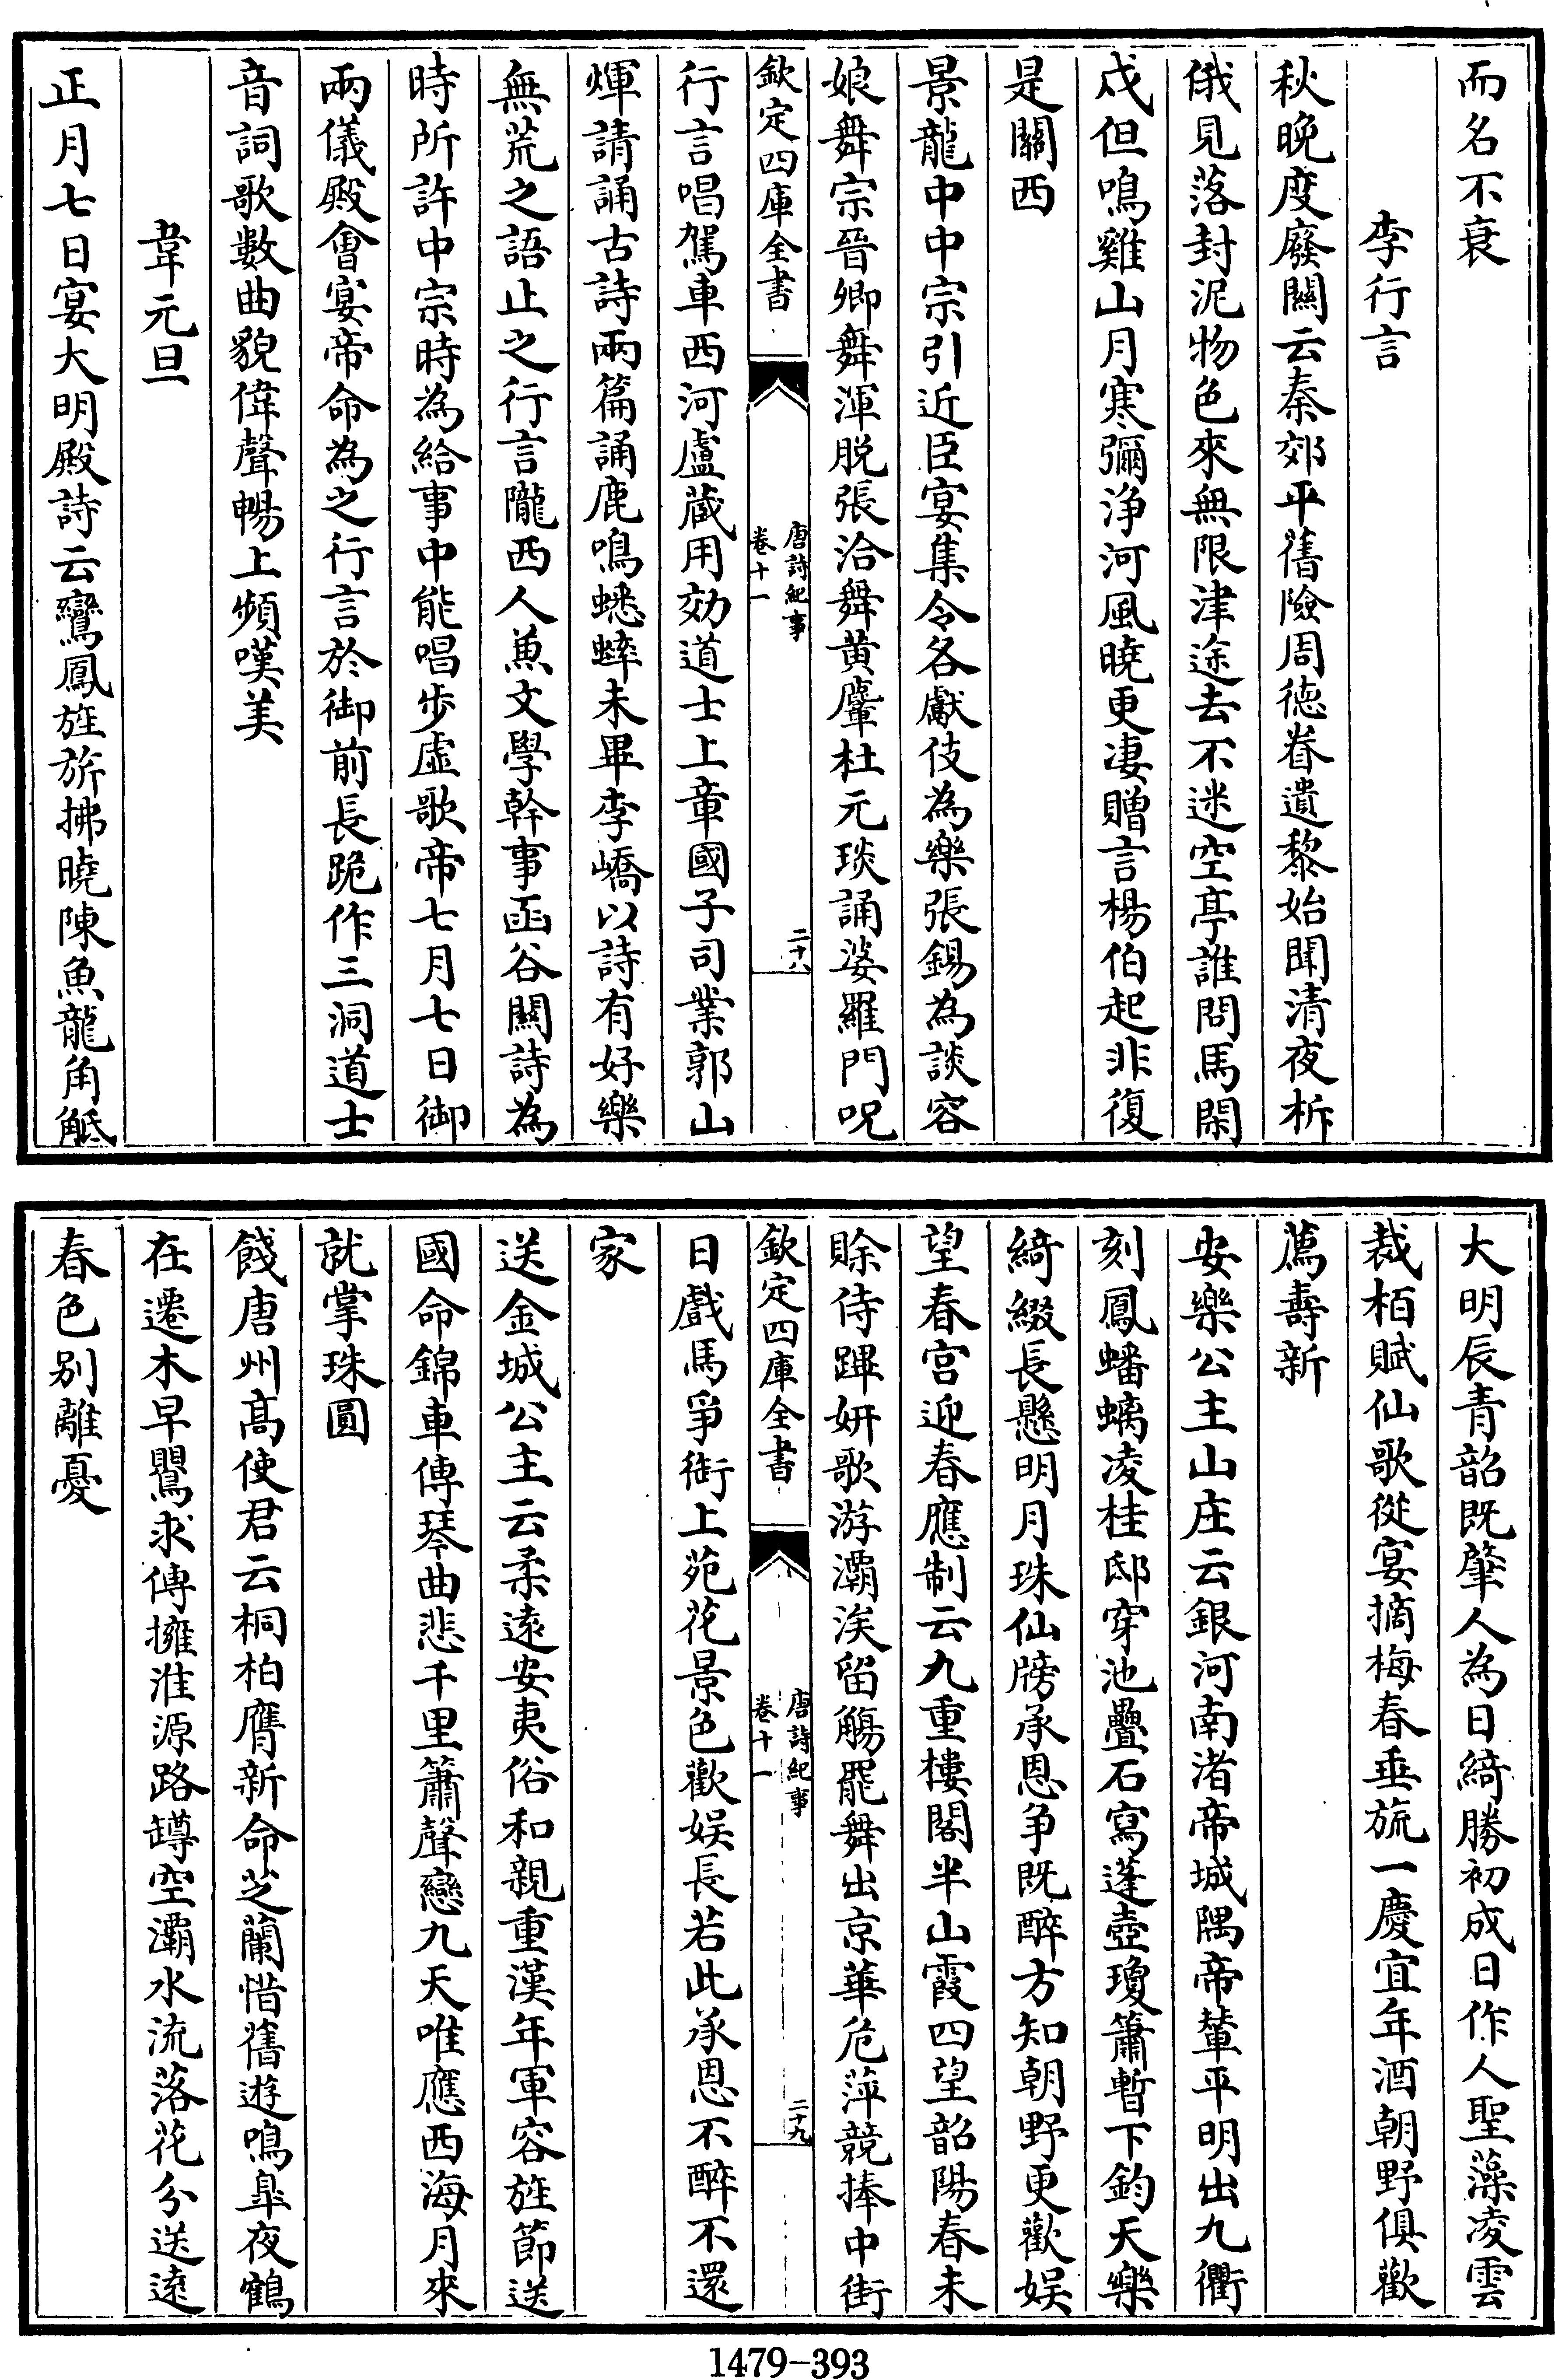 而名不衰
李行言
秋晚度廢關云秦郊平舊險周德眷遺黎始聞清夜柝
俄見落封泥物色來無限津途去不迷空亭誰問馬閑
戍但鳴雞山月寒彌淨河風曉更凄贈言楊伯起非復
是關西
景龍中中宗引近臣宴集令各獻伎為樂張錫為談容
娘舞宗晉卿舞渾脱張洽舞黄麞杜元琰誦婆羅門呪
欽定四庫全書
唐詩紀事
卷十一
二十八
行言唱駕車西河盧藏用効道士上章國子司業郭山
煇請誦古詩兩篇誦鹿鳴蟋蟀未畢李嶠以詩有好樂
無荒之語止之行言隴西人兼文學幹事函谷關詩為
時所許中宗時為給事中能唱步虛歌帝七月七日御
兩儀殿會宴帝命為之行言於御前長跪作三洞道士
音詞歌數曲貌偉聲暢上頻嘆美
韋元旦
正月七日宴大明殿詩云鸞鳳旌旂拂曉陳魚龍角觝
大明辰青韶既肇人為日綺勝初成日作人聖藻凌雲
裁栢賦仙歌從宴摘梅春垂旒一慶宜年酒朝野俱歡
薦壽新
安樂公主山庄云銀河南渚帝城隅帝輦平明出九衢
刻鳳蟠螭凌桂邸穿池疊石寫蓬壺瓊簫暫下鈞天樂
綺綴長懸明月珠仙牓承恩争既醉方知朝野更歡娱
望春宮迎春應制云九重樓閣半山霞四望韶陽春未
賒侍蹕妍歌游灞涘留觴罷舞出京華危萍競捧中街
欽定四庫全書
唐詩紀事
卷十一
二十九
日戲馬爭銜上苑花景色歡娱長若此承恩不醉不還
家
送金城公主云柔遠安夷俗和親重漢年軍容旌節送
國命錦車傳琴曲悲千里簫聲戀九天唯應西海月來
就掌珠圓
餞唐州髙使君云桐柏膺新命芝蘭惜舊遊鳴臯夜鶴
在遷木早鸎求傳擁淮源路罇空灞水流落花分送遠
春色别離憂
1479-393